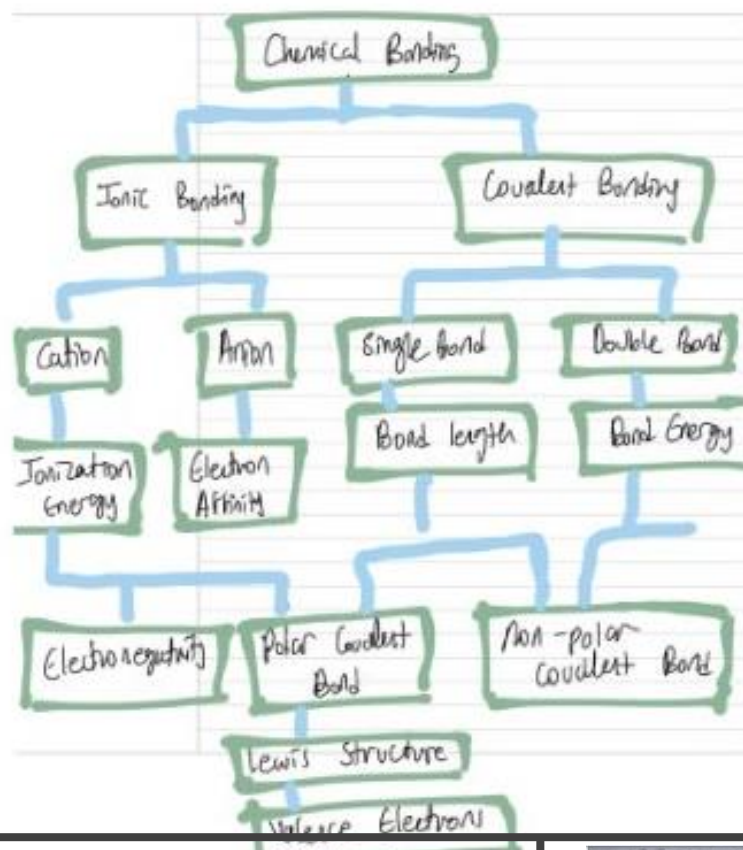 Chemical Bonding
Ionic Bonding
Covalent Bonding
Cation
Anion
Single Bond
Double Bond
Ionization
Energy
Electron
Affinity
Bond length
Bond Energy
Electronegativity
Polar Covalent
Bond
Non-polar
Covalent Bond
Lewis Structure
Valence Electrons